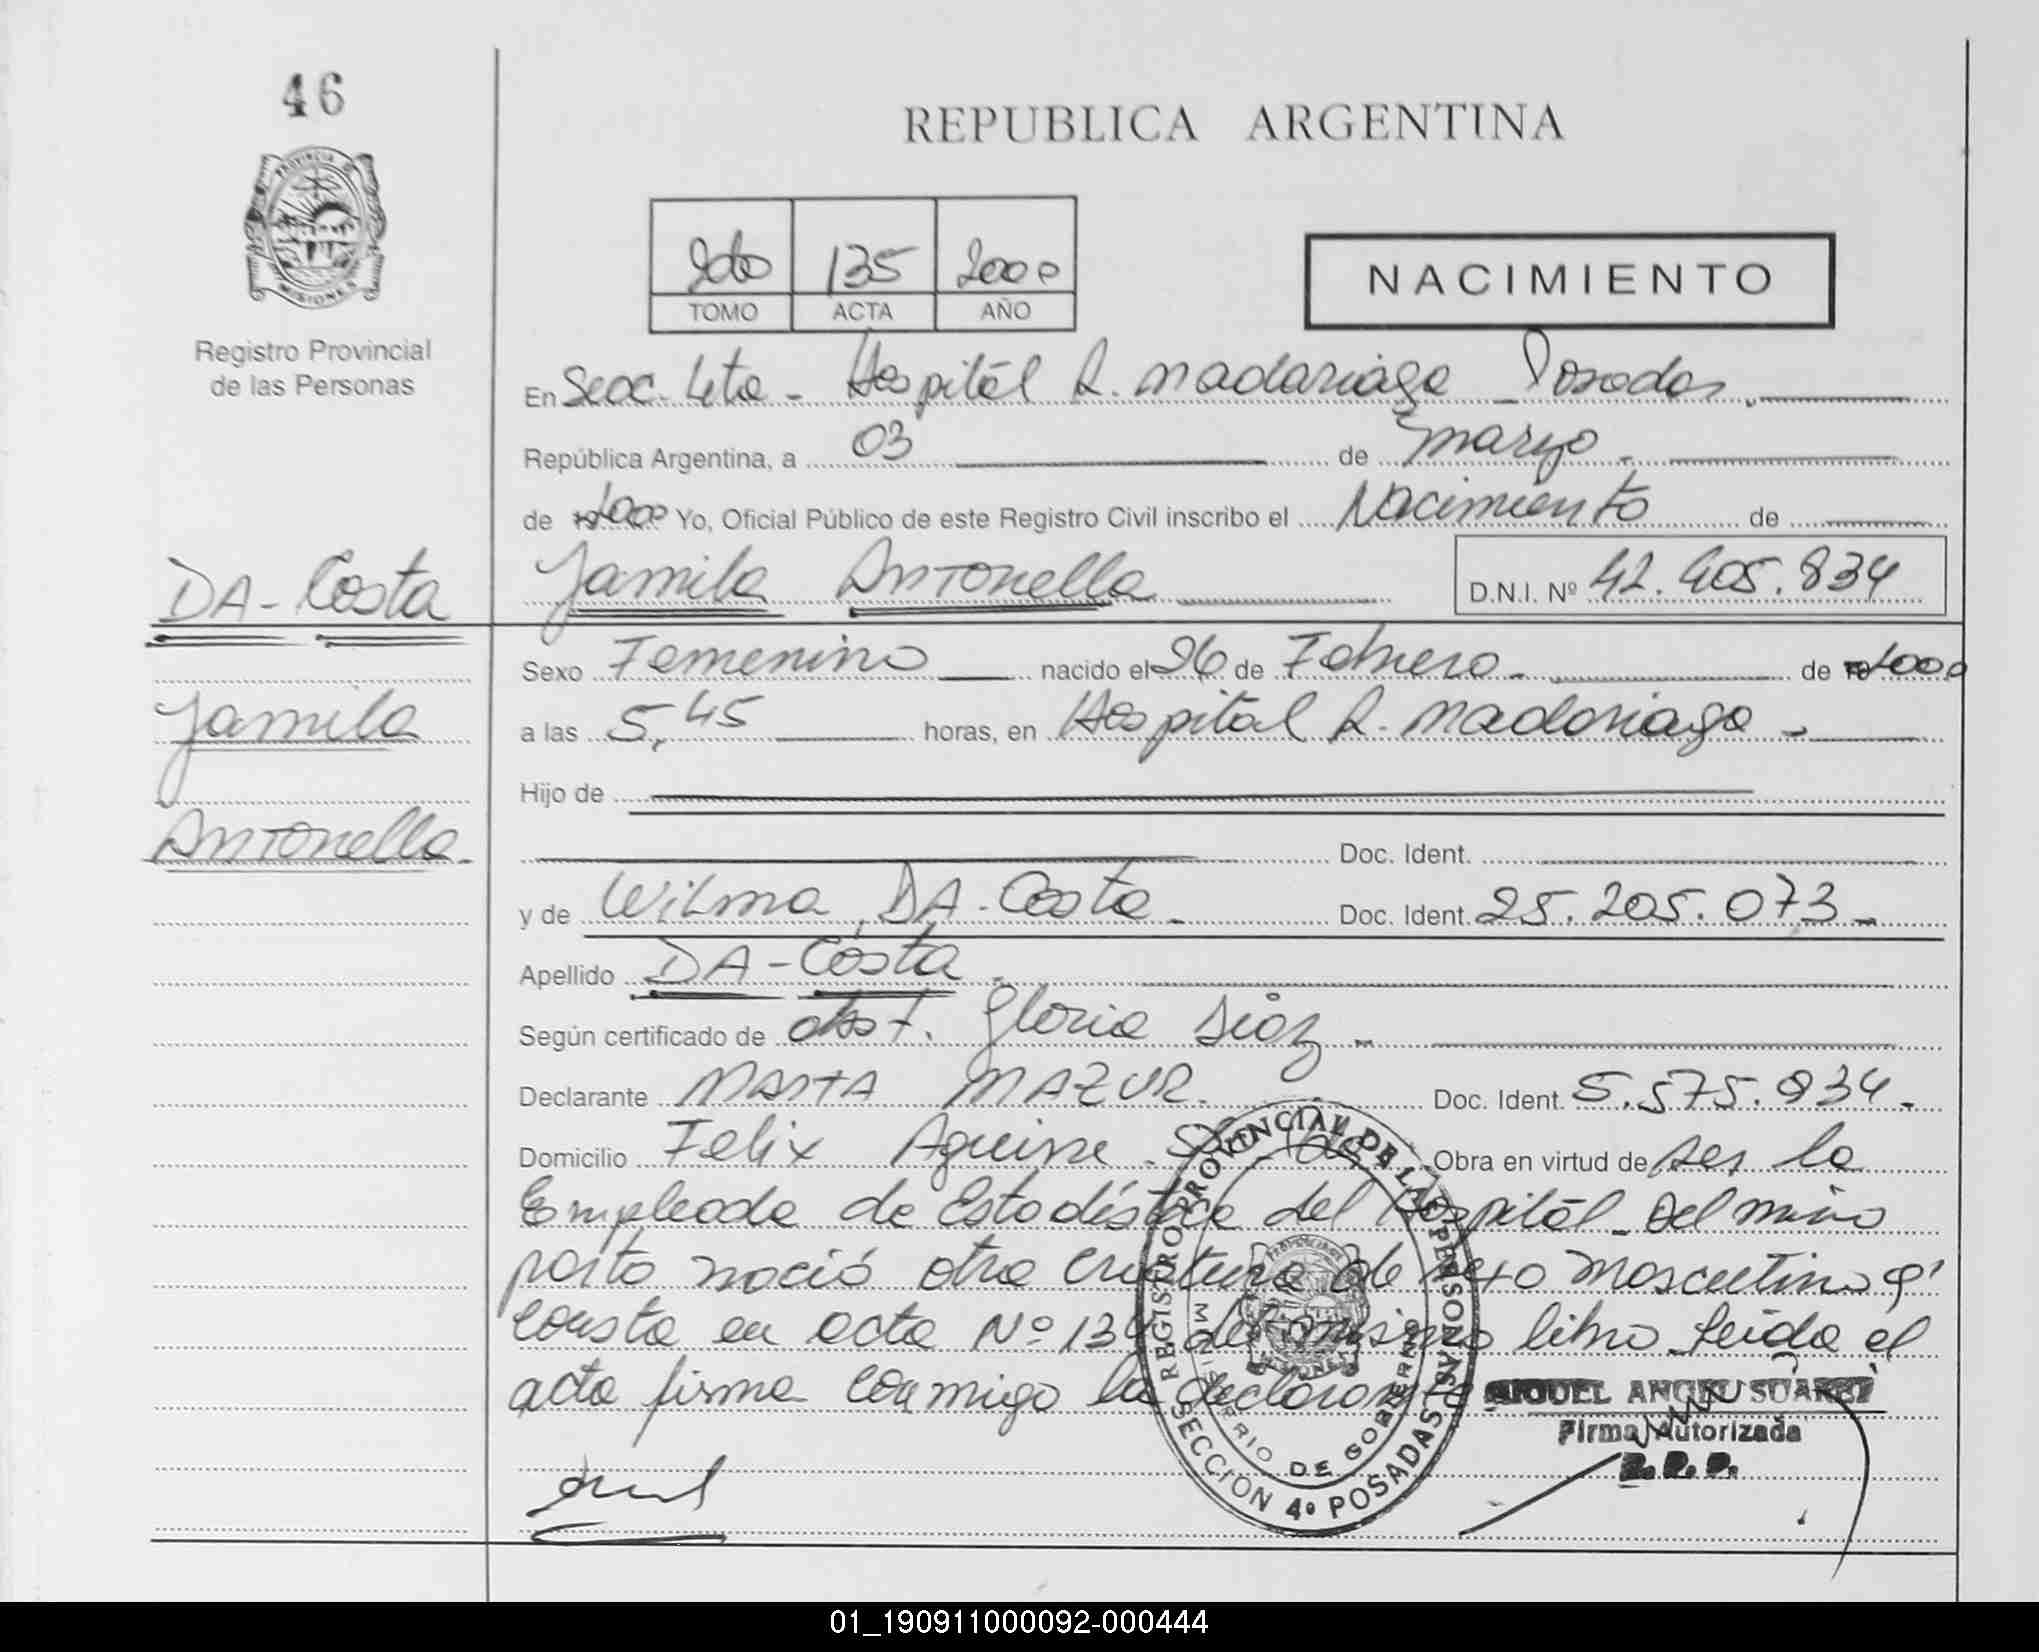 46
PROVINCIA DE
MISIONES
Registro Provincial
de las Personas
REPUBLICA ARGENTINA
2do 135 2000
TOMO ACTA AÑO
NACIMIENTO
En Secc. 4ta - Hospitál R. Madariaga - Posadas.
República Argentina, a 03 de Marzo.
de 2000 Yo, Oficial Público de este Registro Civil inscribo el Nacimiento de
DA-Costa
Yamila Antonella D.N.I. Nº 42.405.834
Sexo Femenino nacido el 26 de Febrero. de 2000
Yamila
a las 5,45 horas, en Hospitál R. Madariaga -
Hijo de
Antonella
Doc. Ident.
y de Wilma DA-Costa Doc. Ident. 25.205.073
Apellido DA-Costa.
Según certificado de obst. Gloria Dioz
Declarante MARTA MAZUR. Doc. Ident. 5.575.934.
Domicilio Felix Aguirre Obra en virtud de ser la
Empleada de Estadística del Hospitál - Del mismo
parto nació otra criatura de sexo Masculino q'
consta en acta Nº 134 del mismo libro - Leida el
acta firma conmigo la declarante
REGISTRO PROVINCIAL DE LAS PERSONAS
MINISTERIO DE GOBIERNO
SECCION 4º POSADAS
MIGUEL ANGEL SUAREZ
Firma Autorizada
R.P.P.
01_190911000092-000444